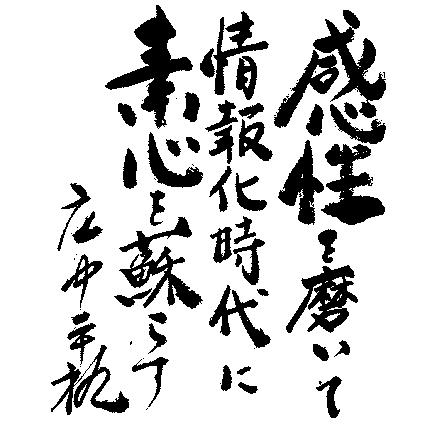 感性を磨いて
情報化時代に
素心を蘇らす
広中平祐